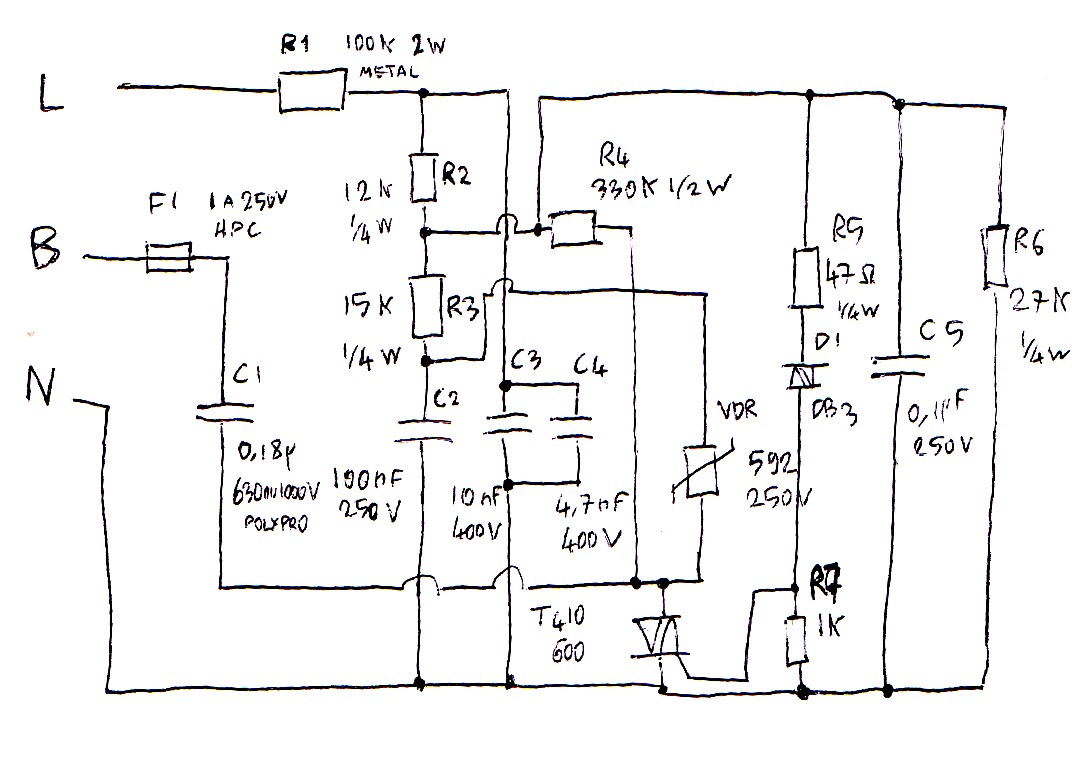 R1 100K 2W
METAL
L
R2
12K
1/4 W
R4
330K 1/2 W
F1 1A 250V
HPC
B
R5
47Ω
1/4W
R6
27K
1/4W
15K
R3
1/4 W
D1
DB3
C5
0,1µF
250V
N
C1
0,18µ
POLYPRO
C2
100nF
250V
C3
10nF
400V
C4
4,7nF
400V
VDR
592
250V
T410
600
R7
1K